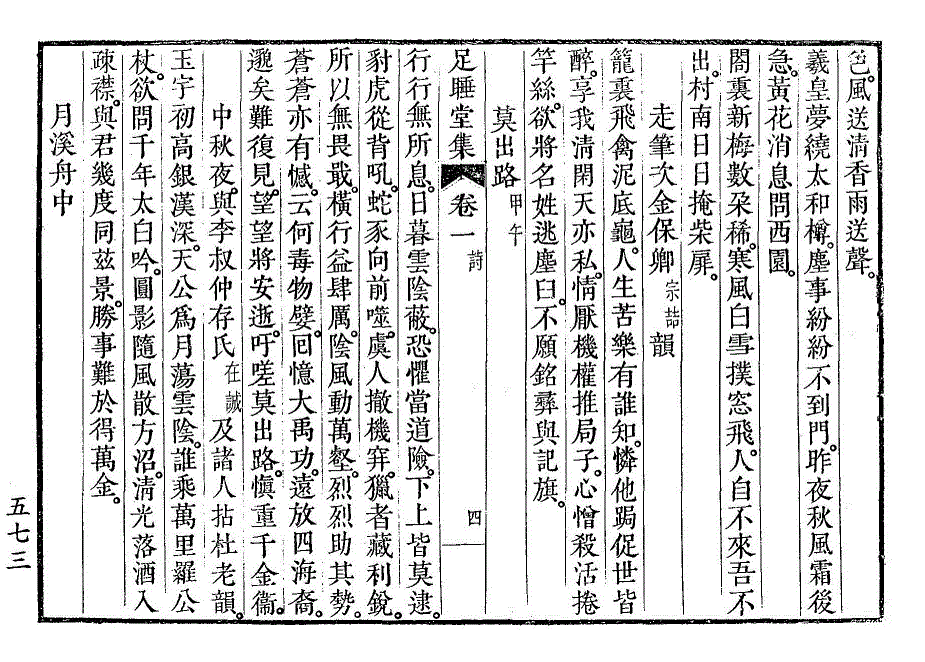 笆。風送清香雨送聲。
羲皇夢繞太和樽。塵事紛紛不到門。昨夜秋風霜後
急。黃花消息問西園。
閤裏新梅數朶稀。寒風白雪撲窓飛。人自不來吾不
出。村南日日掩柴扉。
走筆次金保卿宗喆韻
籠裏飛禽泥底龜。人生苦樂有誰知。憐他跼促世皆
醉。享我淸閑天亦私。情厭機權推局子。心憎殺活捲
竿絲。欲將名姓逃塵臼。不願銘彝與記旗。
莫出路甲午
足睡堂集卷一 詩 四
行行無所息。日暮雲陰蔽。恐懼當道險。下上皆莫逮。
豺虎從背吼。蛇豕向前噬。虞人撤機穽。獵者藏利銳。
所以無畏戢。橫行益肆厲。陰風動萬壑。烈烈助其勢。
蒼蒼亦有憾。云何毒物孽。回憶大禹功。遠放四海裔。
邈矣難復見。望望將安逝。吁嗟莫出路。愼重千金衞。
中秋夜。與李叔仲存氏在誠及諸人拈杜老韻。
玉宇初高銀漢深。天公爲月蕩雲陰。誰乘萬里羅公
杖。欲問千年太白吟。圓影隨風散方沼。淸光落酒入
疎襟。與君幾度同玆景。勝事難於得萬金。
月溪舟中
五七三